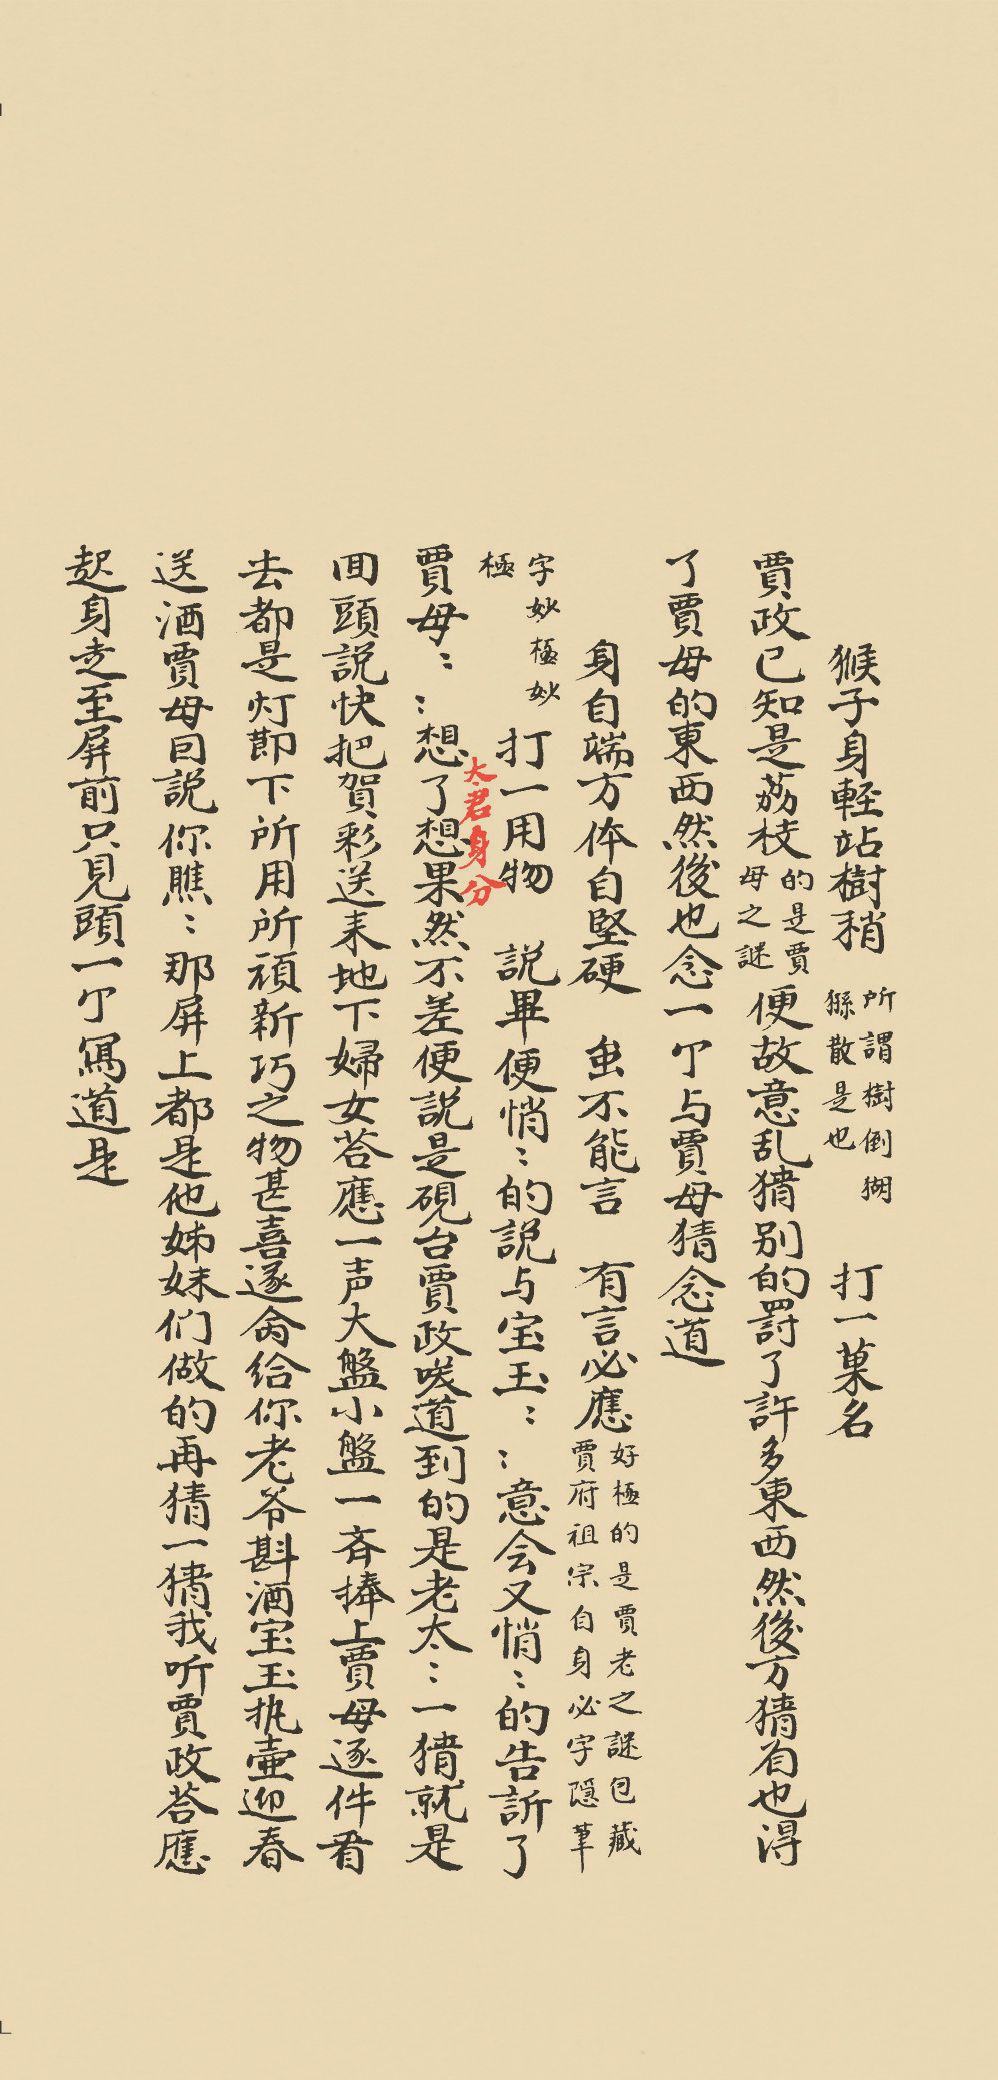 猴子身輕站樹稍 所謂樹倒猢猻散是也 打一菓名
賈政已知是荔枝 的是賈母之謎 便故意乱猜别的罰了許多東西然後方猜着也淂
了賈母的東西然後也念一个与賈母猜念道
身自端方体自堅硬 虽不能言 有言必應 好極的是賈老之謎包藏賈府祖宗自身必字隱筆
字妙極妙極 打一用物 説畢便悄〻的説与宝玉〻〻意会又悄〻的告訴了
太君身分
賈母〻〻想了想果然不差便説是硯台賈政咲道到的是老太〻一猜就是
囬頭説快把賀彩送耒地下婦女荅應一声大盤小盤一斉捧上賈母逐件看
去都是灯節下所用所頑新巧之物甚喜遂命给你老爷斟酒宝玉执壷迎春
送酒賈母因説你瞧〻那屏上都是他姊妹们做的再猜一猜我听賈政荅應
起身走至屏前只見頭一个寫道是